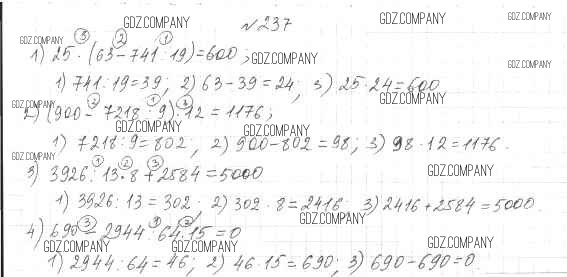 GDZ.COMPANY № 237 GDZ.COMPANY GDZ.COMPANY
GDZ.COMPANY ③ ② ①
1) 25 · (63 − 741 : 19) = 600; GDZ.COMPANY GDZ.COMPANY
1) 741 : 19 = 39; 2) 63 − 39 = 24; 3) 25 · 24 = 600
GDZ.COMPANY ② ① ③ GDZ.COMPANY
2) (900 − 7218 : 9) · 12 = 1176;
GDZ.COMPANY GDZ.COMPANY
1) 7218 : 9 = 802; 2) 900 − 802 = 98; 3) 98 · 12 = 1176.
GDZ.COMPANY ① ② ③ GDZ.COMPANY
3) 3926 : 13 · 8 + 2584 = 5000
1) 3926 : 13 = 302. 2) 302 · 8 = 2416; 3) 2416 + 2584 = 5000.
③ ① ② GDZ.COMPANY
4) 690 − 2944 : 64 · 15 = 0
GDZ.COMPANY GDZ.COMPANY GDZ.COMPANY
1) 2944 : 64 = 46; 2) 46 · 15 = 690; 3) 690 − 690 = 0.